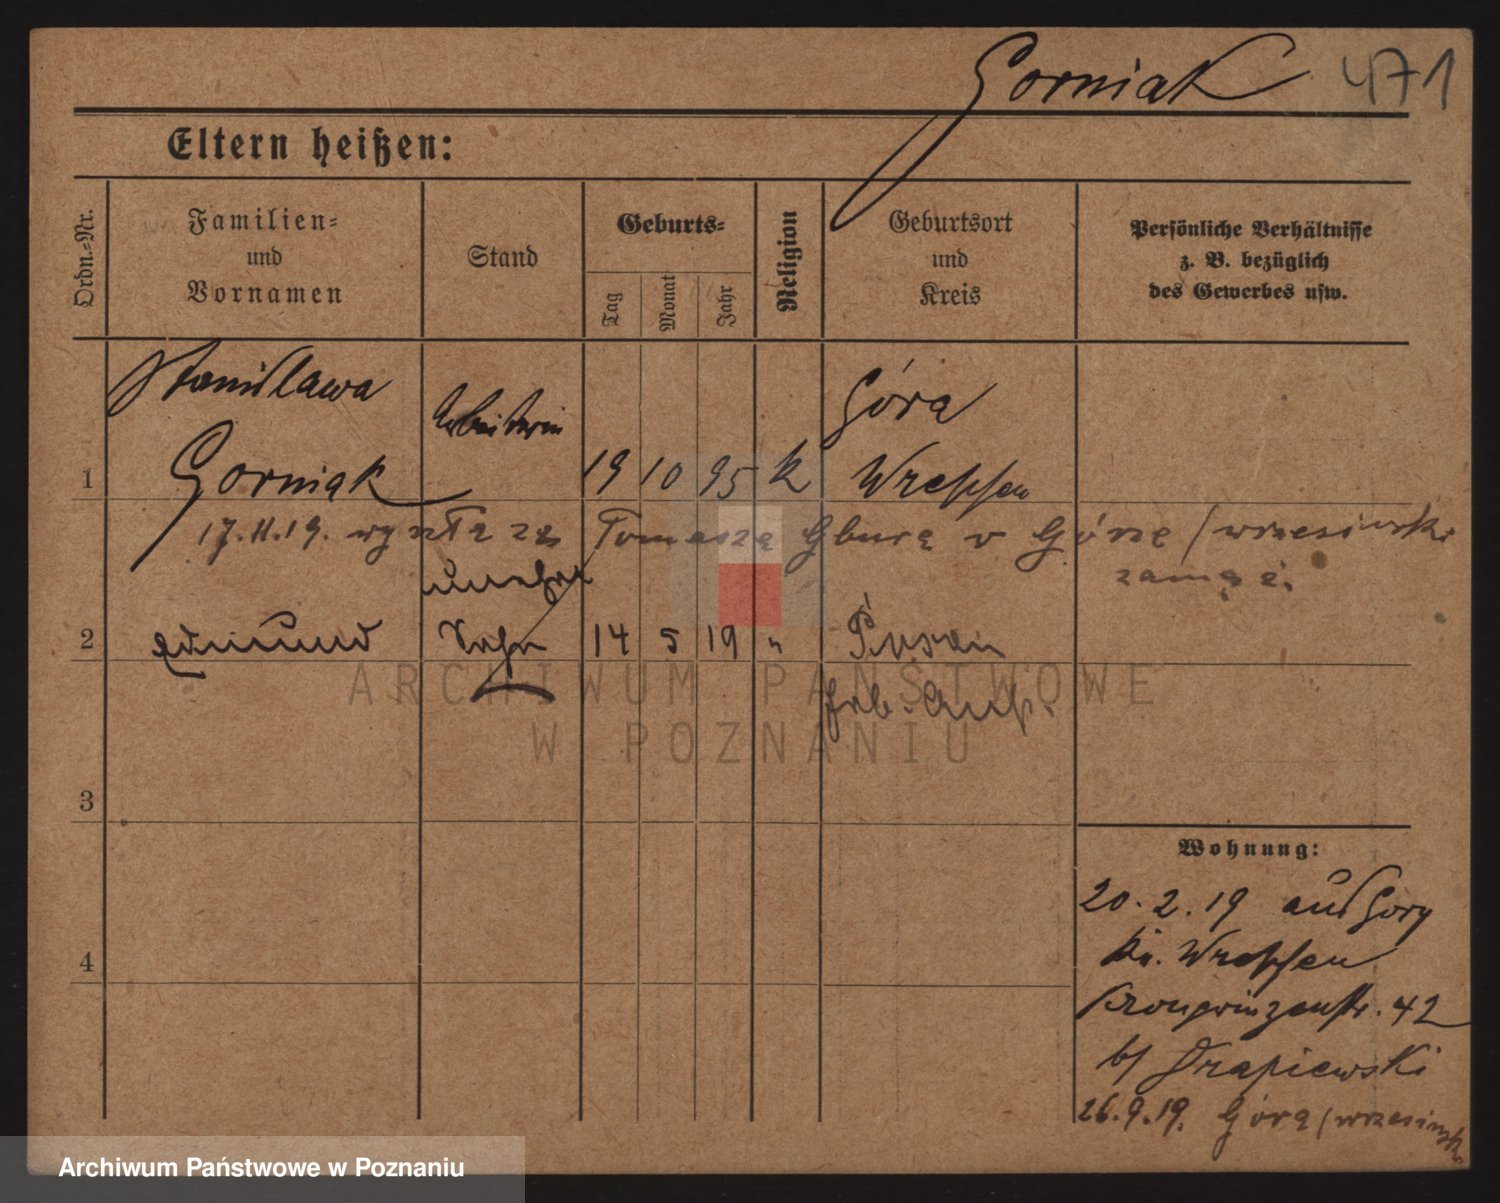 Gorniak 471
Eltern heißen:
Ordn.-Nr.
Familien-
und
Vornamen
Stand
Geburts-
Tag
Monat
Jahr
Religion
Geburtsort
und
Kreis
Persönliche Verhältnisse
z. B. bezüglich
des Gewerbes usw.
Stanislawa
Gorniak
Arbeiterin
1
19 10 95 k
Góra
Wreschen
17.11.19. wyszła za Tomasza Gburę v Górze / wrzesińskie
zamąż.
2
Edmund
unehel
Sohn
14 5 19 "
Posen
Heb. Anst.
3
4
Wohnung:
20.2.19 aus Gory
Kr. Wreschen
Kronprinzenstr. 42
b/ Drapiewski
26.9.19. Góra / wrzesińsk
ARCHIWUM PAŃSTWOWE
W POZNANIU
Archiwum Państwowe w Poznaniu